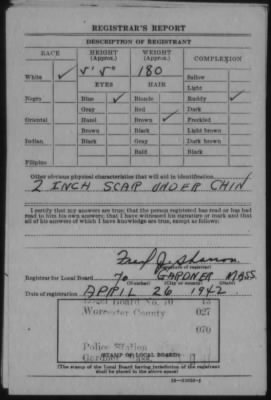 REGISTRAR'S REPORT
DESCRIPTION OF REGISTRANT
RACE HEIGHT (Approx.) WEIGHT (Approx.) COMPLEXION
White ✓ 5' 5" 180 Sallow
EYES HAIR Light
Negro Blue ✓ Blonde Ruddy ✓
Gray Red Dark
Oriental Hazel Brown ✓ Freckled
Brown Black Light brown
Indian Black Gray Dark brown
Bald Black
Filipino
Other obvious physical characteristics that will aid in identification
2 INCH SCAR UNDER CHIN
I certify that my answers are true; that the person registered has read or has had
read to him his own answers; that I have witnessed his signature or mark and that
all of his answers of which I have knowledge are true, except as follows:
Fred J. Shannon
(Signature of registrar)
Registrar for Local Board 70 GARDNER MASS.
(Number) (City or county) (State)
Date of registration APRIL 26 1942
Local Board No. 70 15
Worcester County 027
070
Police Station
Gardner, Mass.
(STAMP OF LOCAL BOARD)
(The stamp of the Local Board having jurisdiction of the registrant
shall be placed in the above space)